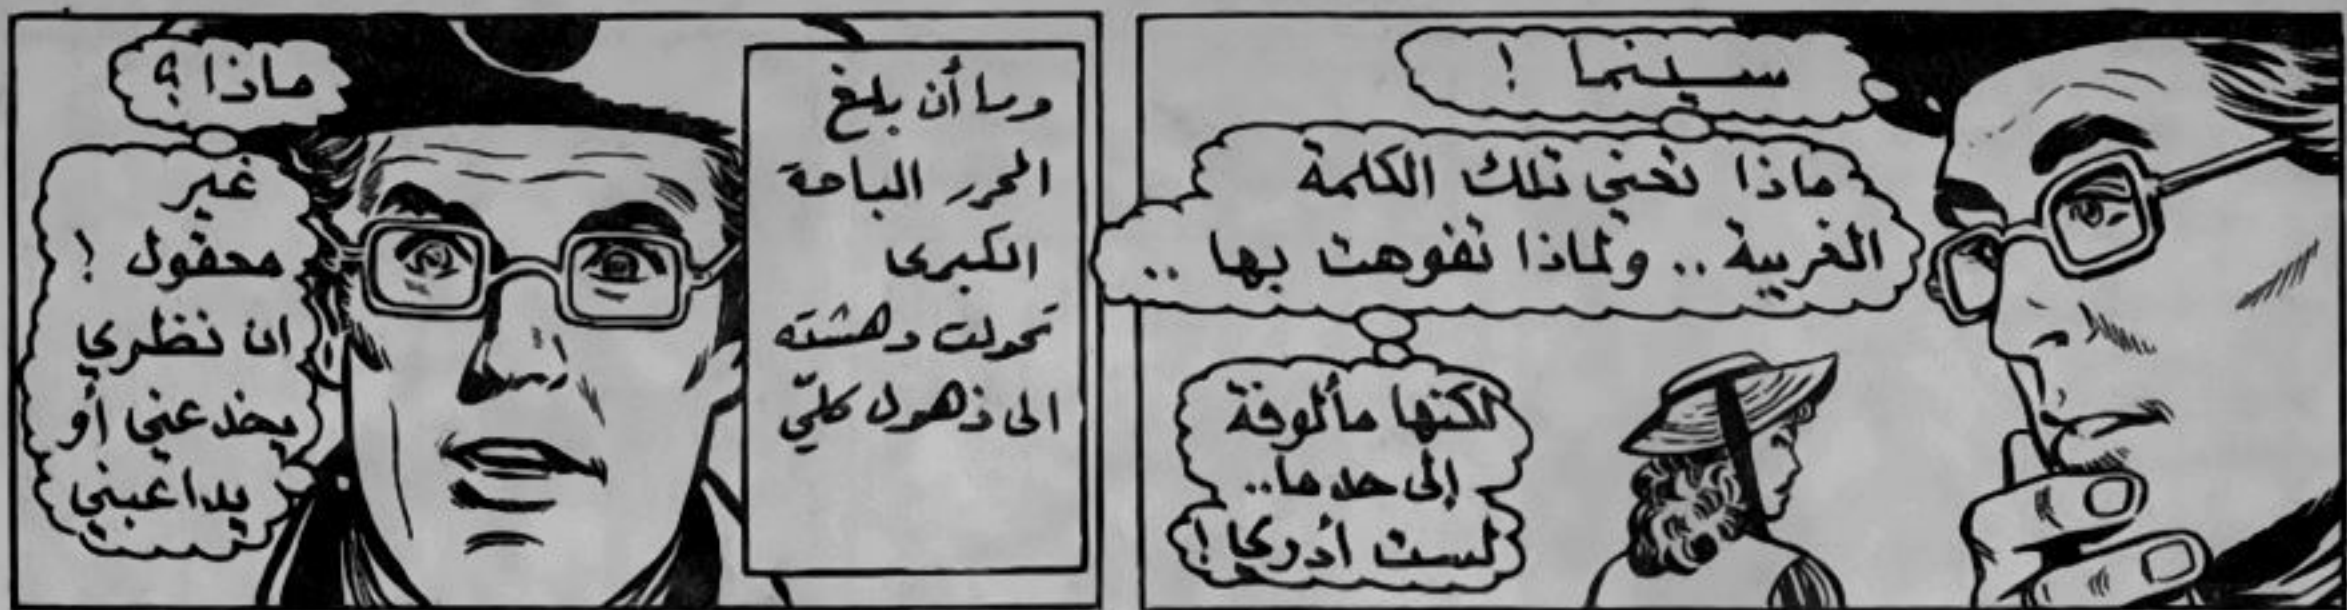 سينما !
ماذا تعني تلك الكلمة
الغريبة .. ولماذا تفوهت بها ..
لكنها مألوفة
إلى حد ما..
لست أدري !
وما أن بلغ
المحرر الباحة
الكبرى
تحولت دهشته
الى ذهول كليّ
ماذا ؟
غير
معقول !
ان نظري
يخدعني أو
يداعبني